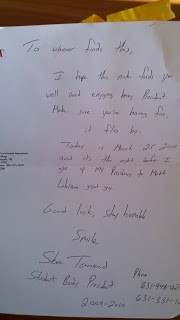 To whoever finds this,
I hope this note finds you
well and enjoying being President.
Make sure you're having fun,
it flies by.
Today is March 25 2010
and it's the night before I
give up my Presidency to Matt
great guy.
Good luck, stay humble
Smile
Steve Townsend
Student Body President
2009-2010
Phone:
631-
631-331-